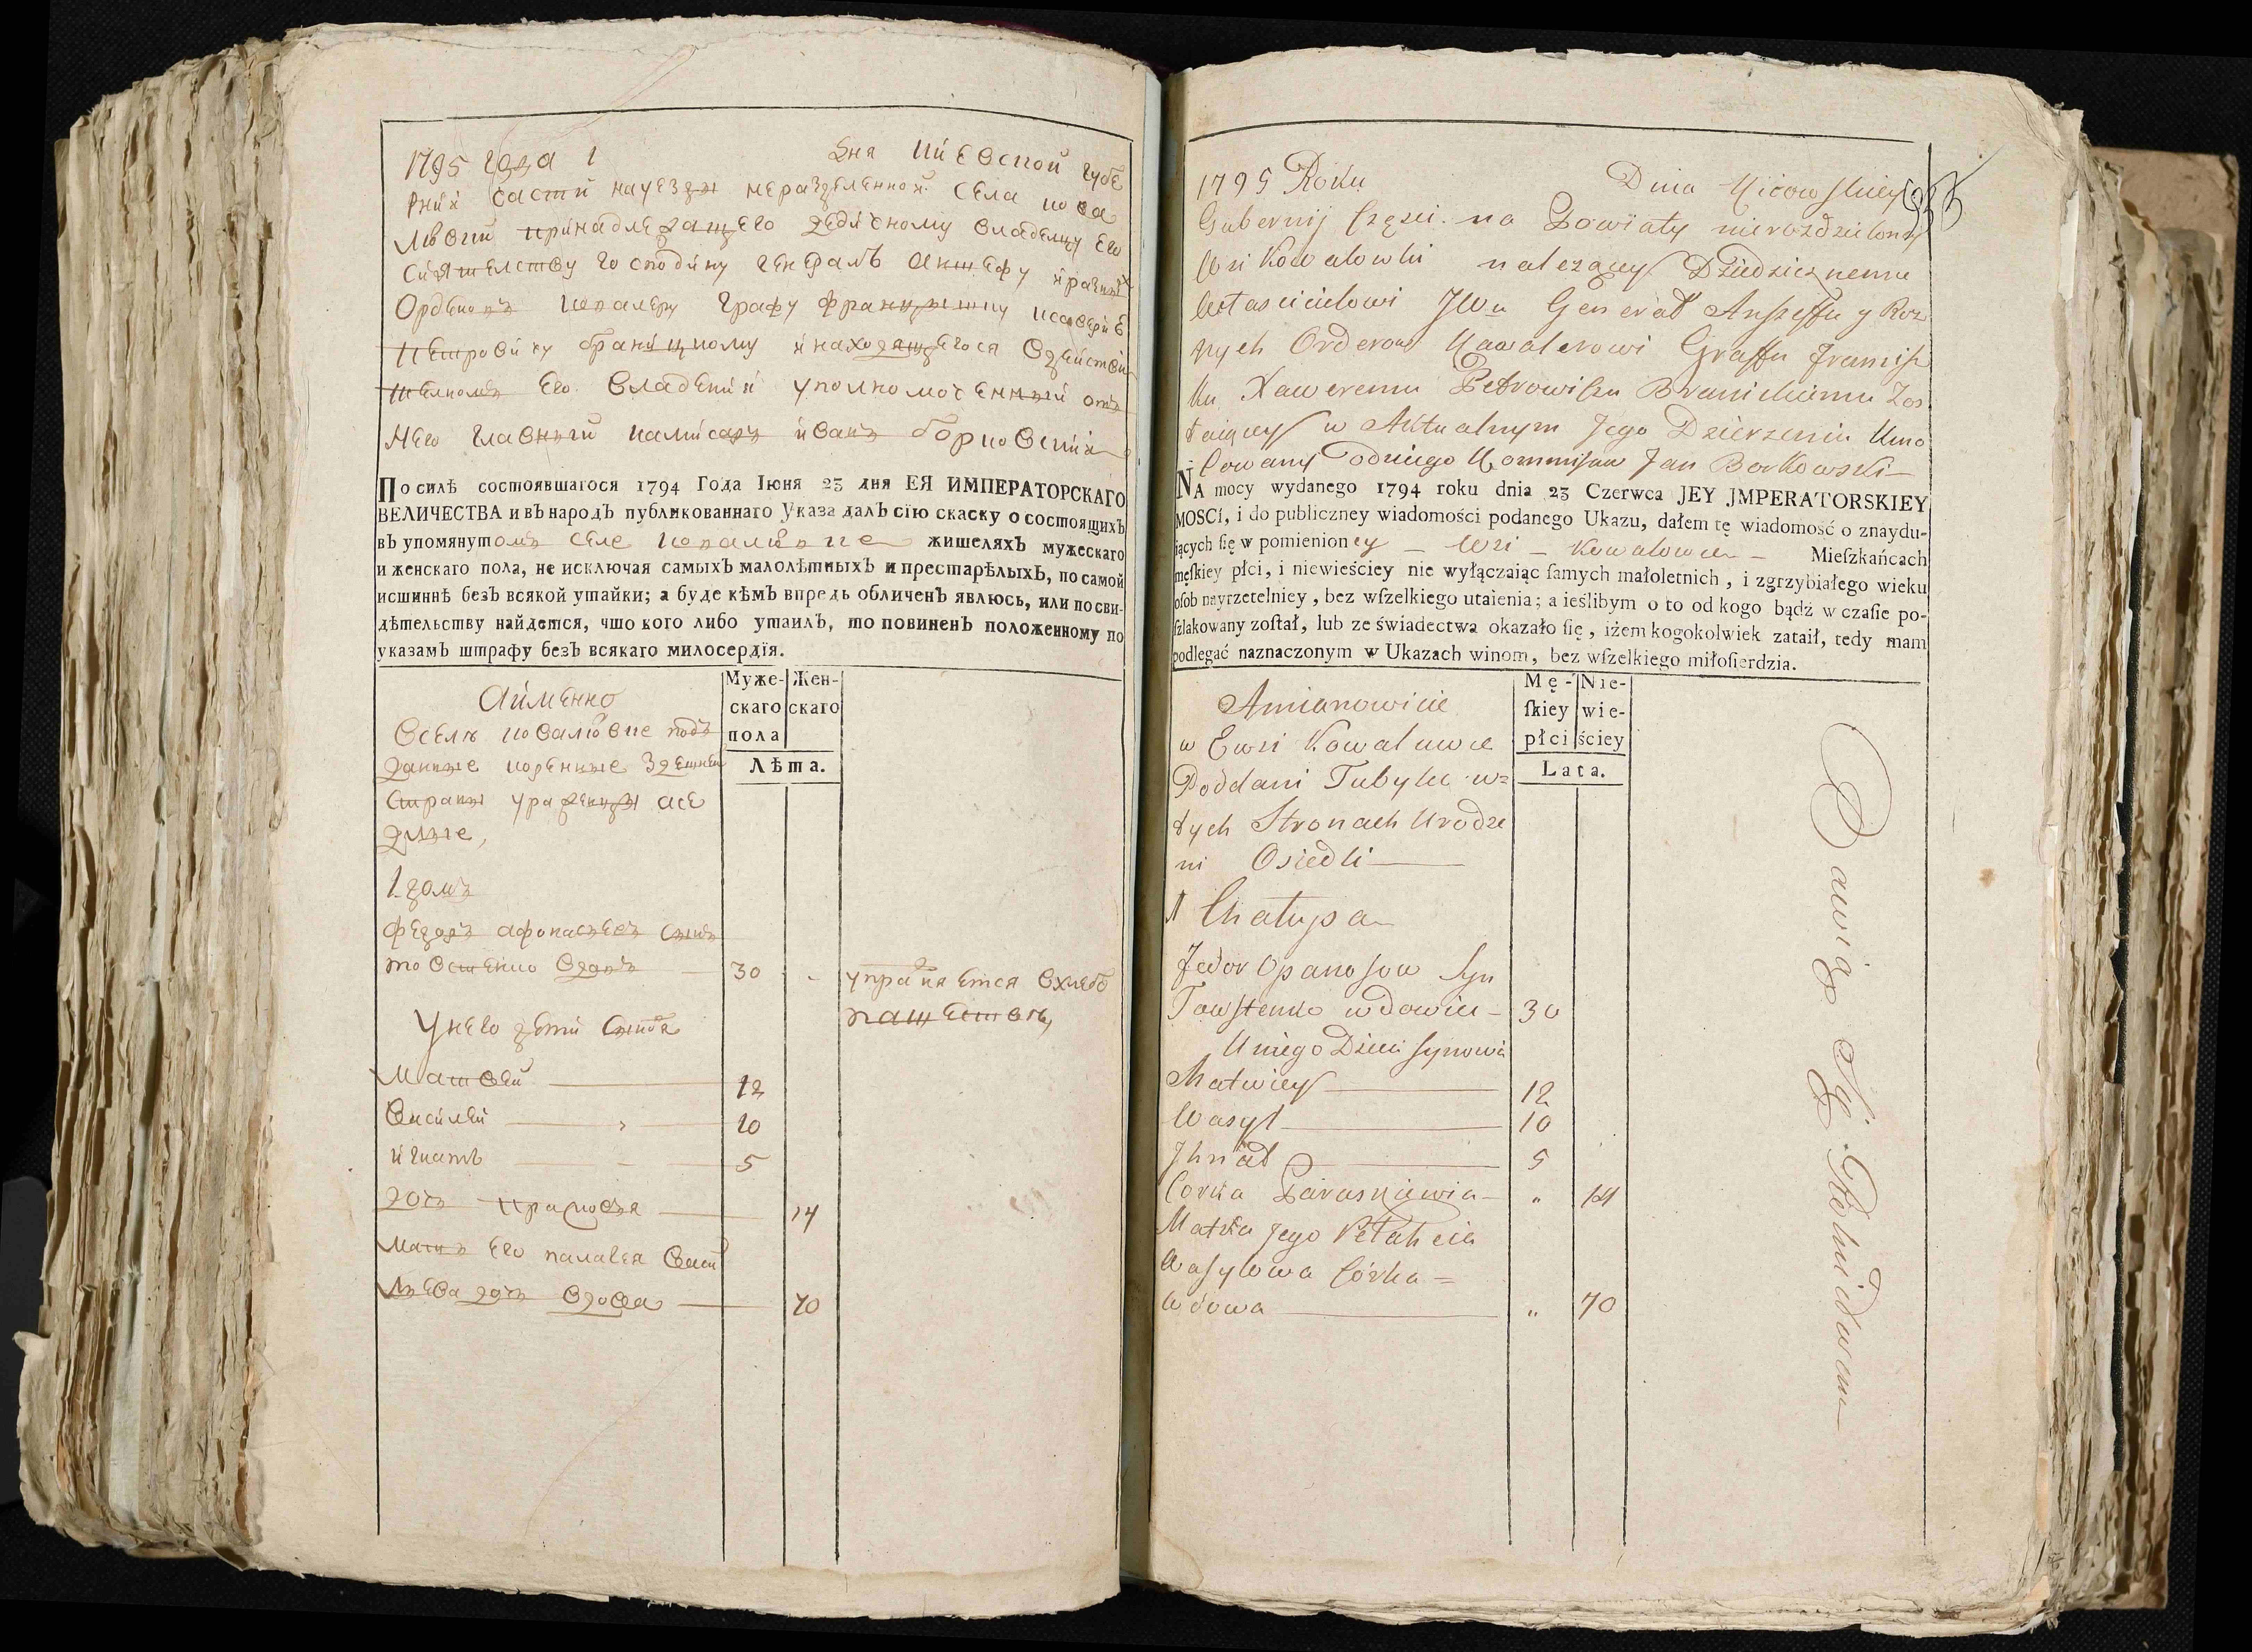 1795 года 1 дня Киевской губе
рнии части науезды неразделенной села кова
левки принадлежащего дедичному владелцу его
сиятелству господину генералъ аншефу иразныхъ
Орденовъ кавалеру графу францышку ксаверию
Петровичу браницкому инаходящегося вдействи
телномъ его владении уполномоченный отъ
него главный камисаръ иванъ борковский
По силѣ состоявшагося 1794 Года Іюня 23 дня ЕЯ ИМПЕРАТОРСКАГО
ВЕЛИЧЕСТВА и въ народъ публикованнаго Указа далъ сїю скаску о состоящихъ
въ упомянутомъ селе ковалювке жителяхъ мужескаго
и женскаго пола, не исключая самыхъ малолѣтныхъ и престарѣлыхъ, по самой
истиннѣ безъ всякой утайки; а буде кѣмъ впредь обличенъ явлюсь, или по сви-
дѣтельству найдется, что кого либо утаилъ, то повиненъ положенному по
указамъ штрафу безъ всякаго милосердїя.
Муже- Жен-
скаго скаго
пола
Лѣта.
Аименно
Вселе ковалювке подъ
даные коренные здешней
страны уроженцы осе
длые,
1. домъ
федоръ афонасьевъ сынъ
товстенко вдовъ — 30 - упражняется вхлебо
пашестве,
Унего дети сыновя
Матвей 12
Василей 10
игнатъ 5
дочь прасковя 14
мать его палагея васи
льева дочь вдова 70
1795 Roku Dnia Kiiowskiey
Gubernij Częsci na Powiaty nierozdzieloney
Wsi Kowalowki nalezącey Dziedzicznemu
Włascicielowi JWu Generał Anszeffu y Roz
nych Orderow Kawalerowi Graffu Francisz
ku Xaweremu Petrowiczu Branickiemu Zos
taiącey w Aktualnym Jego Dzierzeniu Umo
cowany odniego Kommisarz Jan Borkowski
NA mocy wydanego 1794 roku dnia 23 Czerwca JEY JMPERATORSKIEY
MOSCI, i do publiczney wiadomości podanego Ukazu, dałem tę wiadomość o znaydu-
jących ſię w pomienioney — Wsi — Kowalowce — Mieſzkańcach
męſkiey płci, i niewieściey nie wyłączaiąc ſamych małoletnich, i zgrzybiałego wieku
oſób nayrzetelniey, bez wſzelkiego utaienia; a ieślibym o to od kogo bądź w czaſie po-
ſzlakowany zoſtał, lub ze świadectwa okazało ſię, iżem kogokolwiek zataił, tedy mam
podlegać naznaczonym w Ukazach winom, bez wſzelkiego miłoſierdzia.
Mę- Nie-
ſkiey wie-
płci ściey
Lata.
Amianowicie
w Ewsi Kowalowce
Poddani Tubylcy w=
tych Stronach Urodze
ni Osiedli
1 Chałupa
Fedor Opanasow Syn
Towstenko wdowiec — 30
Uniego Dzieci Synowie
Matwiey 12
Wasyl 10
Jhnat 5
Corka Paraskiewia " 14
Matka Jego Pełaheia
Wasylowa Córka =
Wdowa " 70